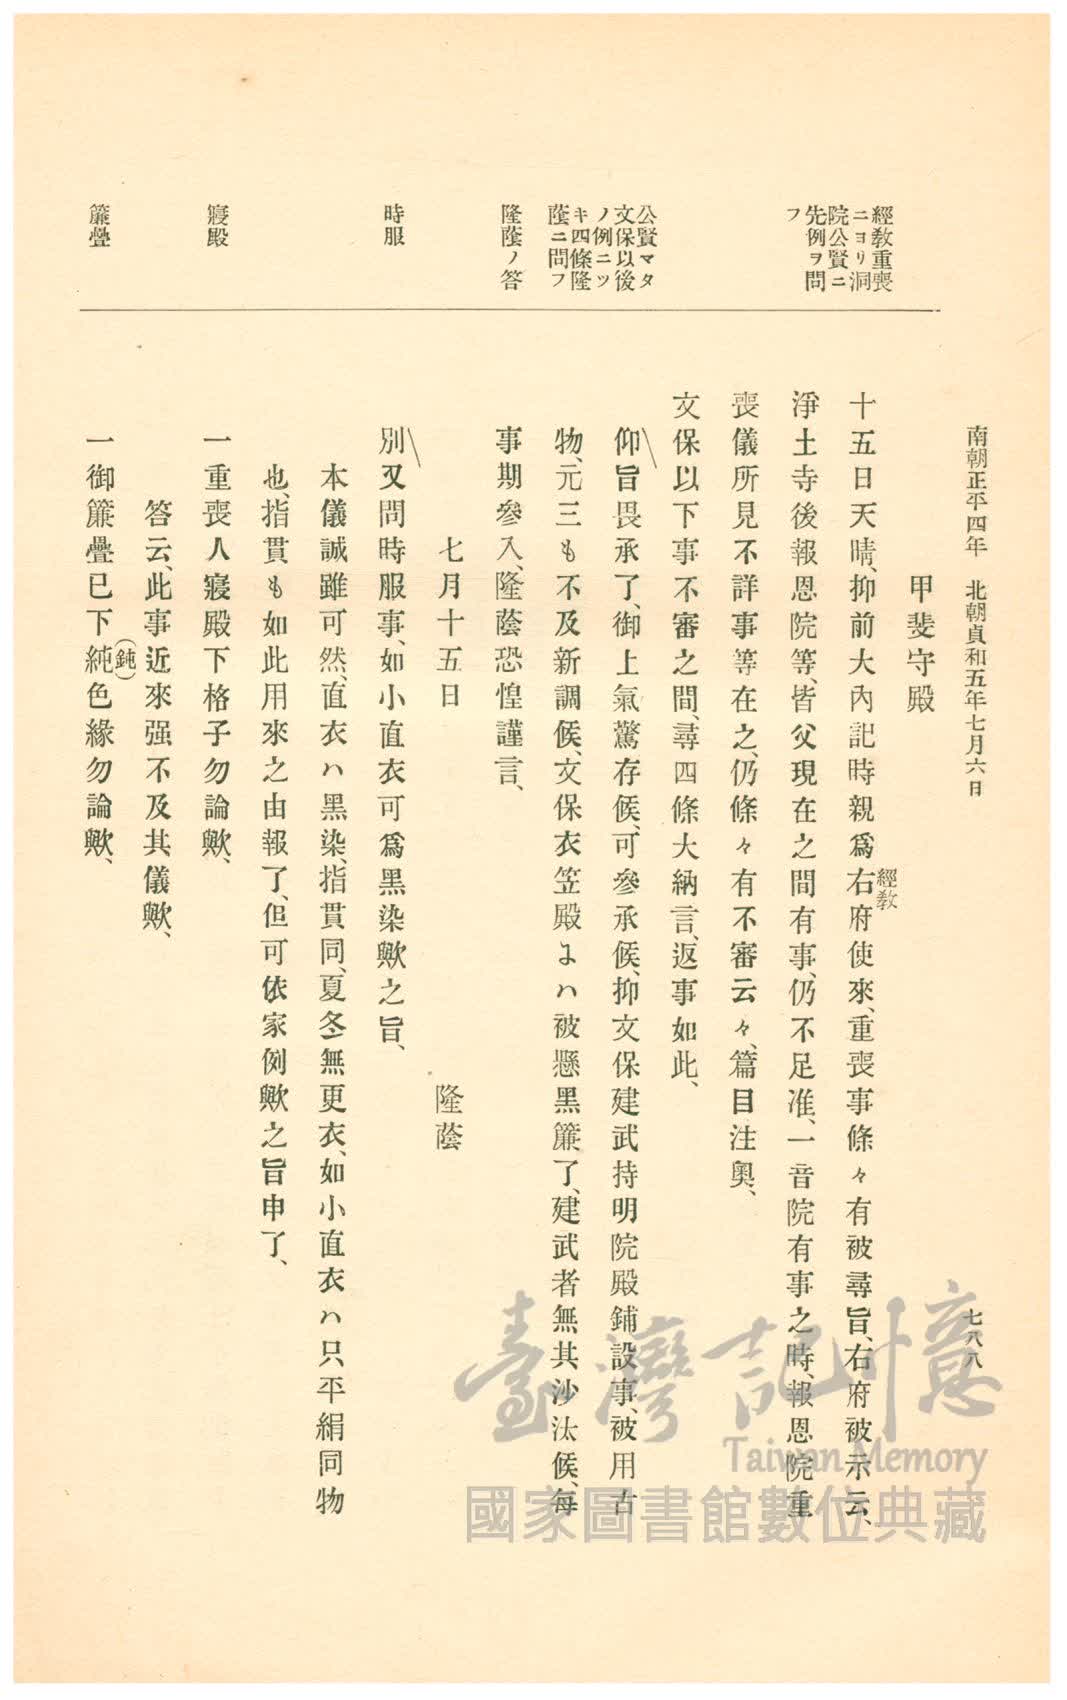 南朝正平四年 北朝貞和五年七月六日
七八八
經敎重喪
ニヨリ洞
院公賢ニ
先例ヲ問
フ
公賢マタ
文保以後
ノ例ニツ
キ四條隆
蔭ニ問フ
隆蔭ノ答
時服
寢殿
簾疊
甲斐守殿
十五日天晴、抑前大內記時親爲右府使來、重喪事條々有被尋旨、右府被示云、
經敎
淨土寺後報恩院等、皆父現在之間有事、仍不足准、一音院有事之時、報恩院重
喪儀所見不詳事等在之、仍條々有不審云々、篇目注奧、
文保以下事不審之間、尋四條大納言、返事如此、
仰旨畏承了、御上氣驚存候、可參承候、抑文保建武持明院殿鋪設事、被用古
物、元三も不及新調候、文保衣笠殿よハ被懸黑簾了、建武者無其沙汰候、每
事期參入、隆蔭恐惶謹言、
七月十五日 隆蔭
別又問時服事、如小直衣可爲黑染歟之旨、
本儀誠雖可然、直衣ハ黑染、指貫同、夏冬無更衣、如小直衣ハ只平絹同物
也、指貫も如此用來之由報了、但可依家例歟之旨申了、
一重喪人寢殿下格子勿論歟、
答云、此事近來强不及其儀歟、
一御簾疊已下純色緣勿論歟、
(鈍)
臺灣記憶
Taiwan Memory
國家圖書館數位典藏